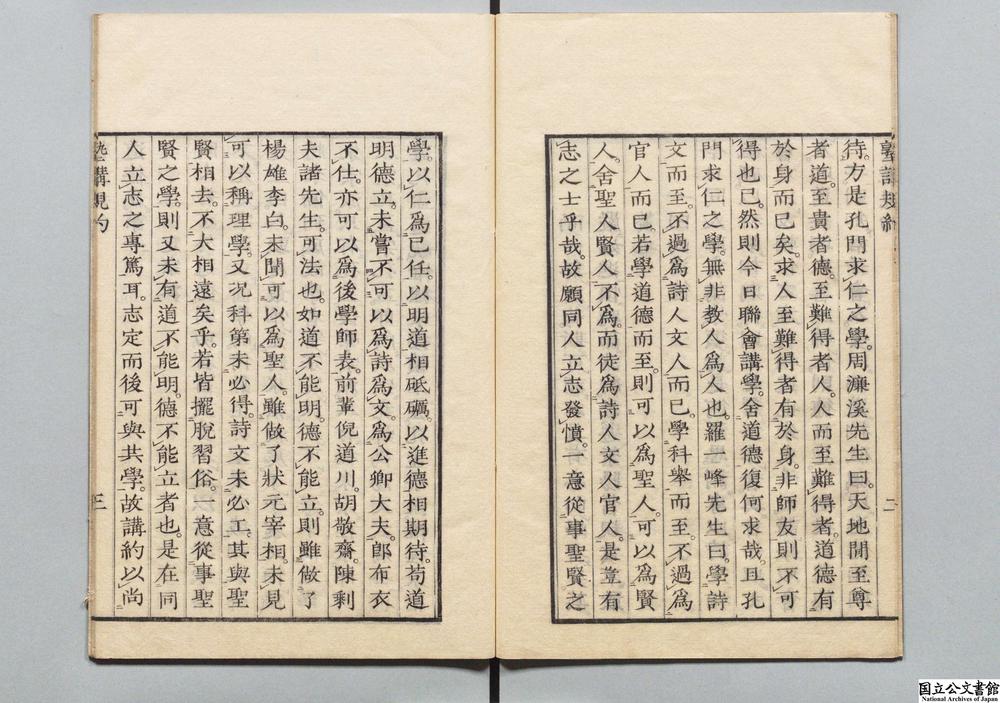 塾講規約
待。方是孔門求仁之學。周濂溪先生曰。天地閒至尊
者道。至貴者德。至難得者人。人而至難得者。道德有
於身而已矣。求人至難得者有於身。非師友則不可
得也已。然則今日聯會講學。舍道德復何求哉。且孔
門求仁之學。無非教人爲人也。羅一峰先生曰。學詩
文而至。不過爲詩人文人而已。學科舉而至。不過爲
官人而已。若學道德而至。則可以爲聖人。可以爲賢
人。舍聖人賢人不爲。而徒爲詩人文人官人。是豈有
志之士乎哉。故願同人立志發憤。一意從事聖賢之
二
學。以仁爲已任。以明道相砥礪。以進德相期待。苟道
明德立。未嘗不可以爲詩爲文。爲公卿大夫。郎布衣
不仕。亦可以爲後學師表。前輩倪道川。胡敬齋。陳剩
夫諸先生。可法也。如道不能明。德不能立。則雖做了
楊雄李白。未聞可以爲聖人。雖做了狀元宰相。未見
可以稱理學。又况科第未必得。詩文未必工。其與聖
賢相去。不大相遠矣乎。若皆擺脫習俗。一意從事聖
賢之學。則又未有道不能明。德不能立者也。是在同
人立志之專篤耳。志定而後可與共學。故講約以尚
塾講規約
三
国立公文書館
National Archives of Japan